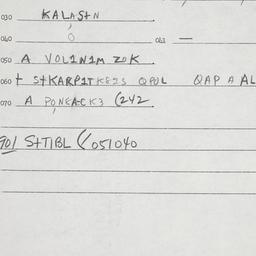 030 KALAS+N
040 0 041 —
050 A VOL1N1M ZOK
060 + S+KARP1TK8IS QPUL QAP A AL
070 A PONEACK3 (242
901 S+T1BL (051040